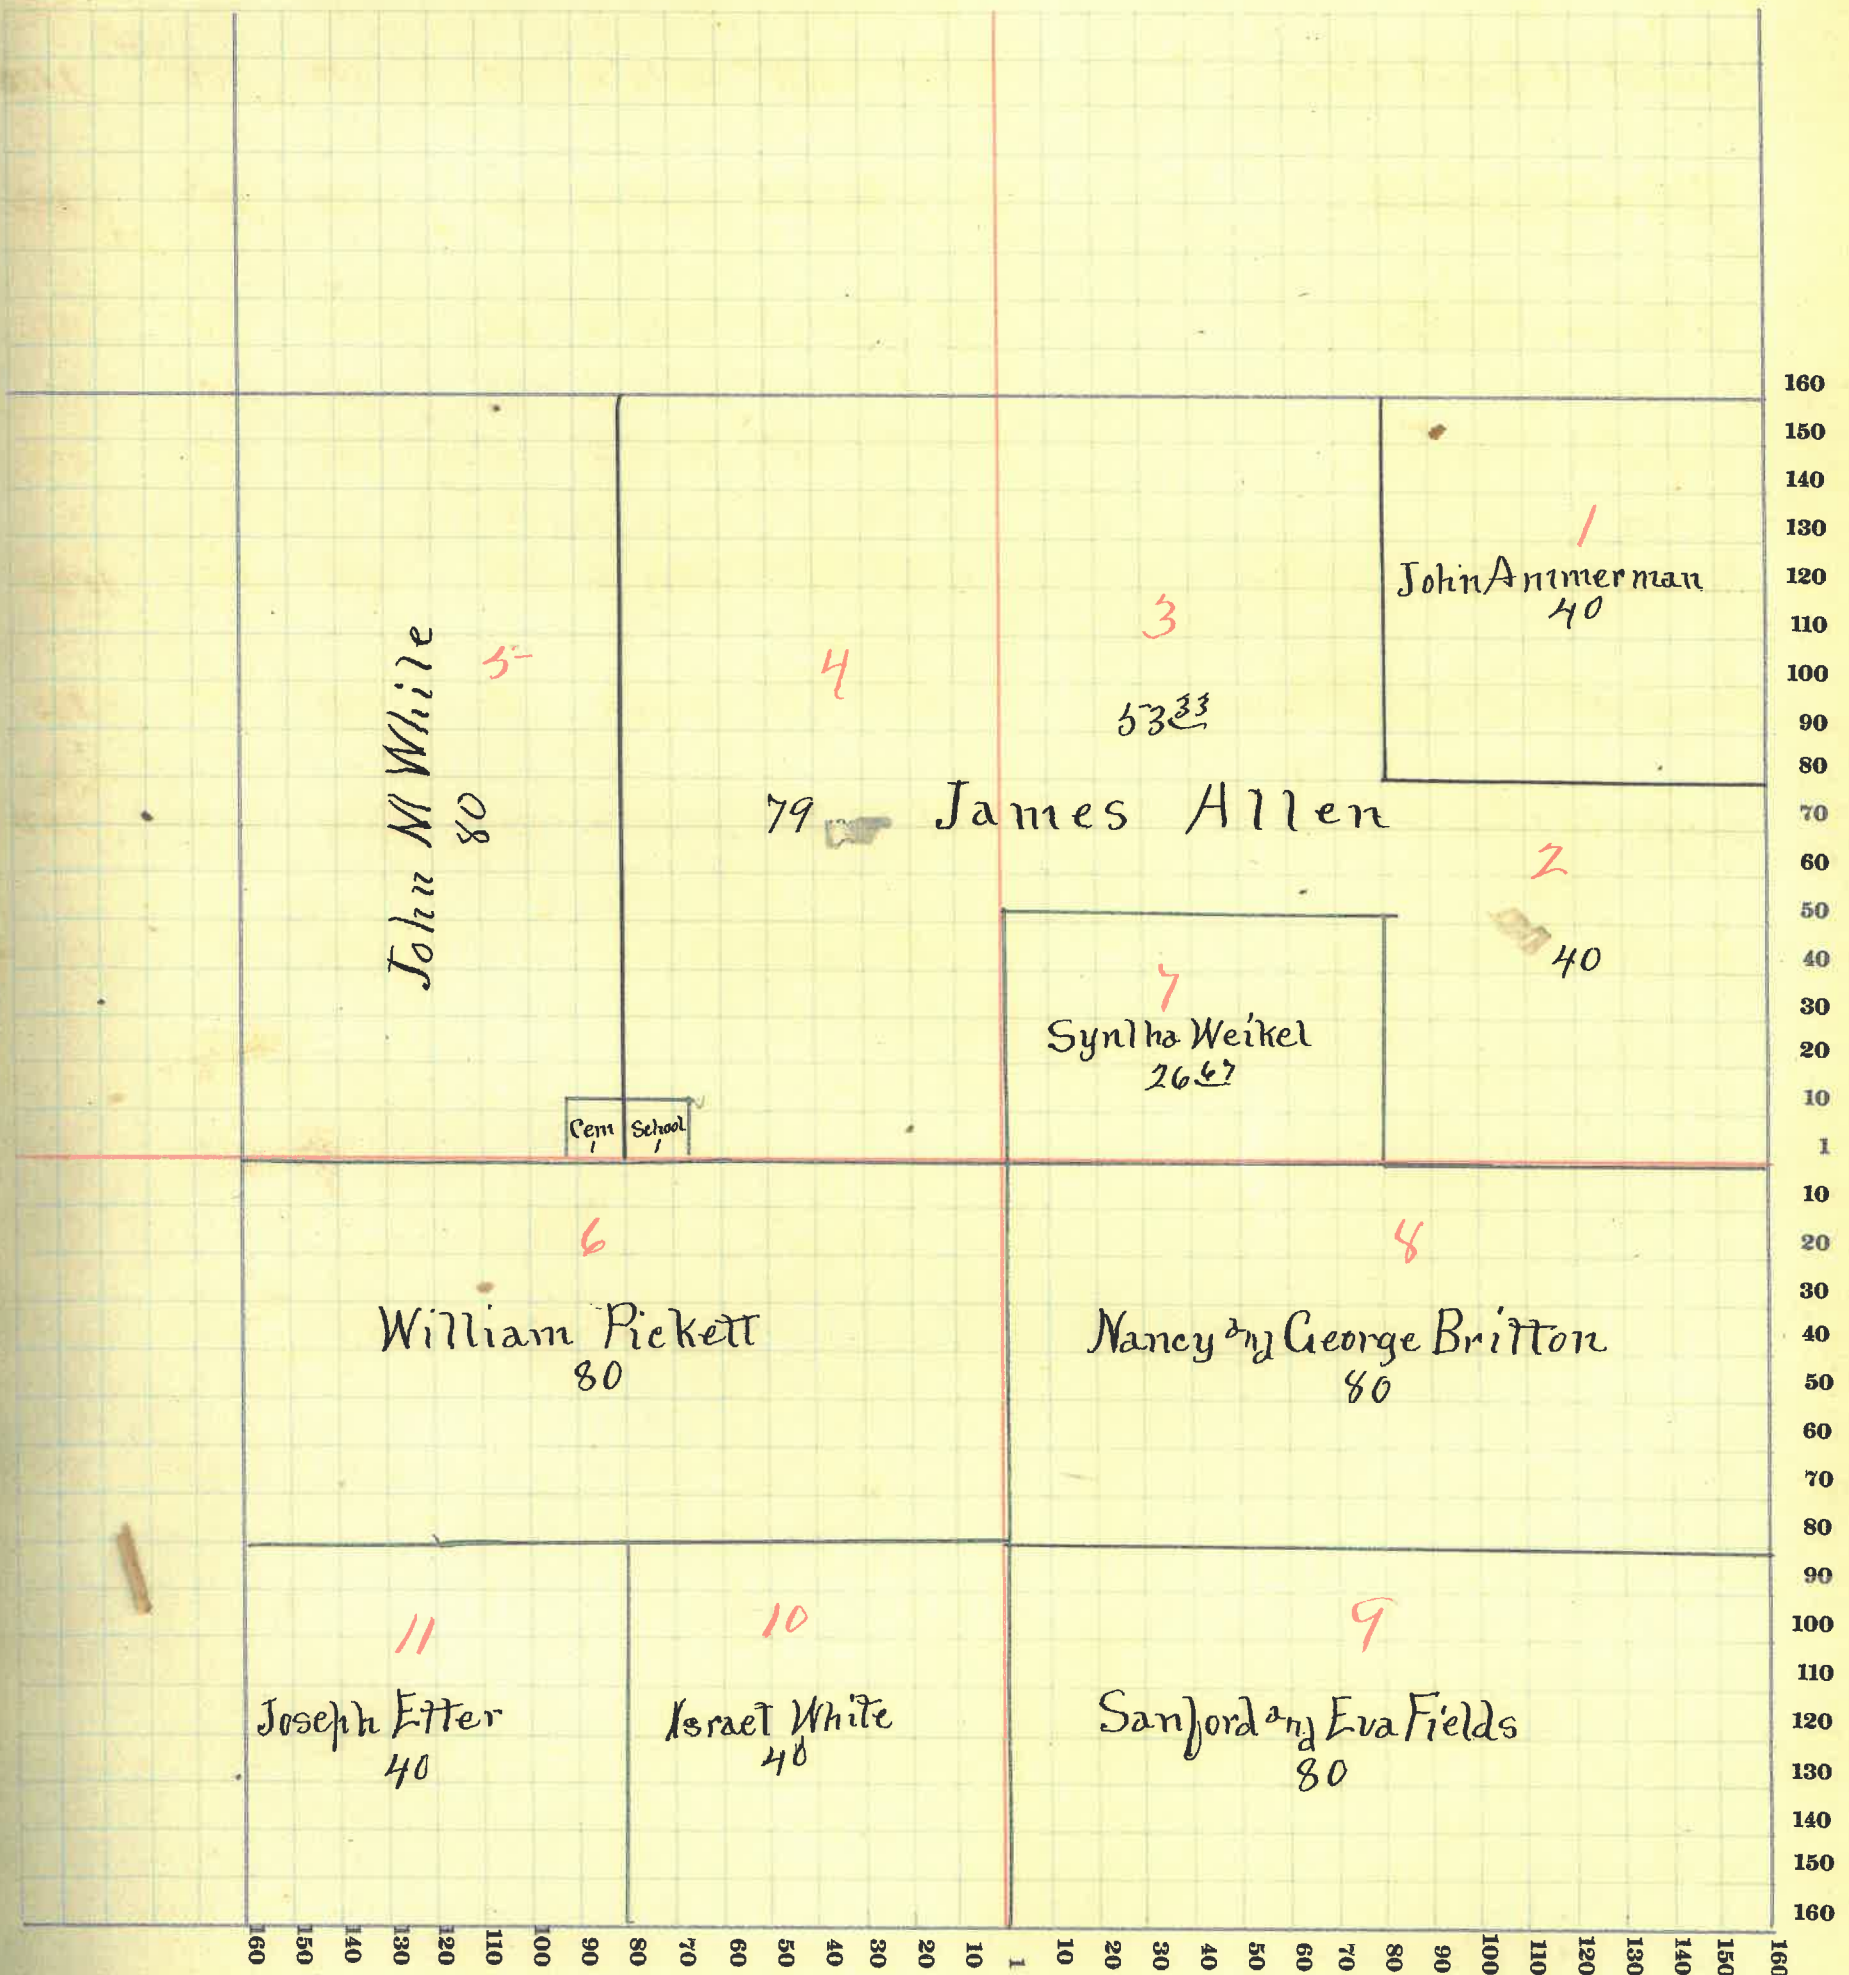 160
150
140
130
120
110
100
90
80
70
60
50
40
30
20
10
1
10
20
30
40
50
60
70
80
90
100
110
120
130
140
150
160
1
John Ammerman
40
3
53 33
5
John M White
80
4
79
James Allen
2
40
7
Syntha Weikel
26 67
Cem
1
School
1
6
William Pickett
80
8
Nancy and George Britton
80
11
Joseph Etter
40
10
Israel White
40
9
Sanford and Eva Fields
80
160 150 140 130 120 110 100 90 80 70 60 50 40 30 20 10 1 10 20 30 40 50 60 70 80 90 100 110 120 130 140 150 160